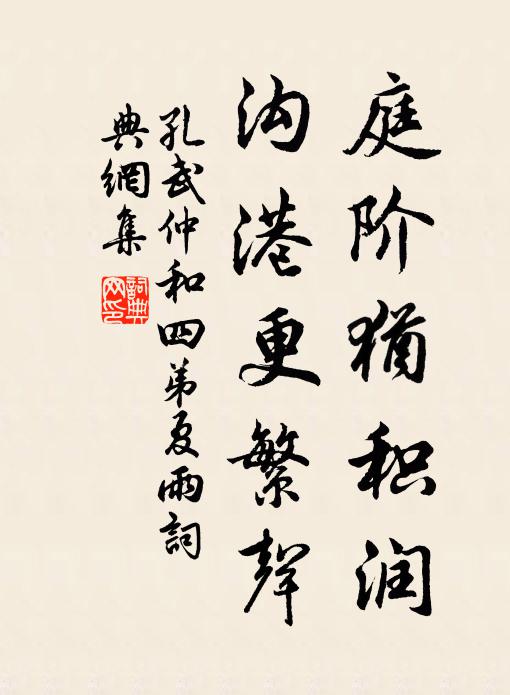 庭阶犹积润
沟港更繁声
孔武仲和四弟夏雨詞
典網集
詞典网印